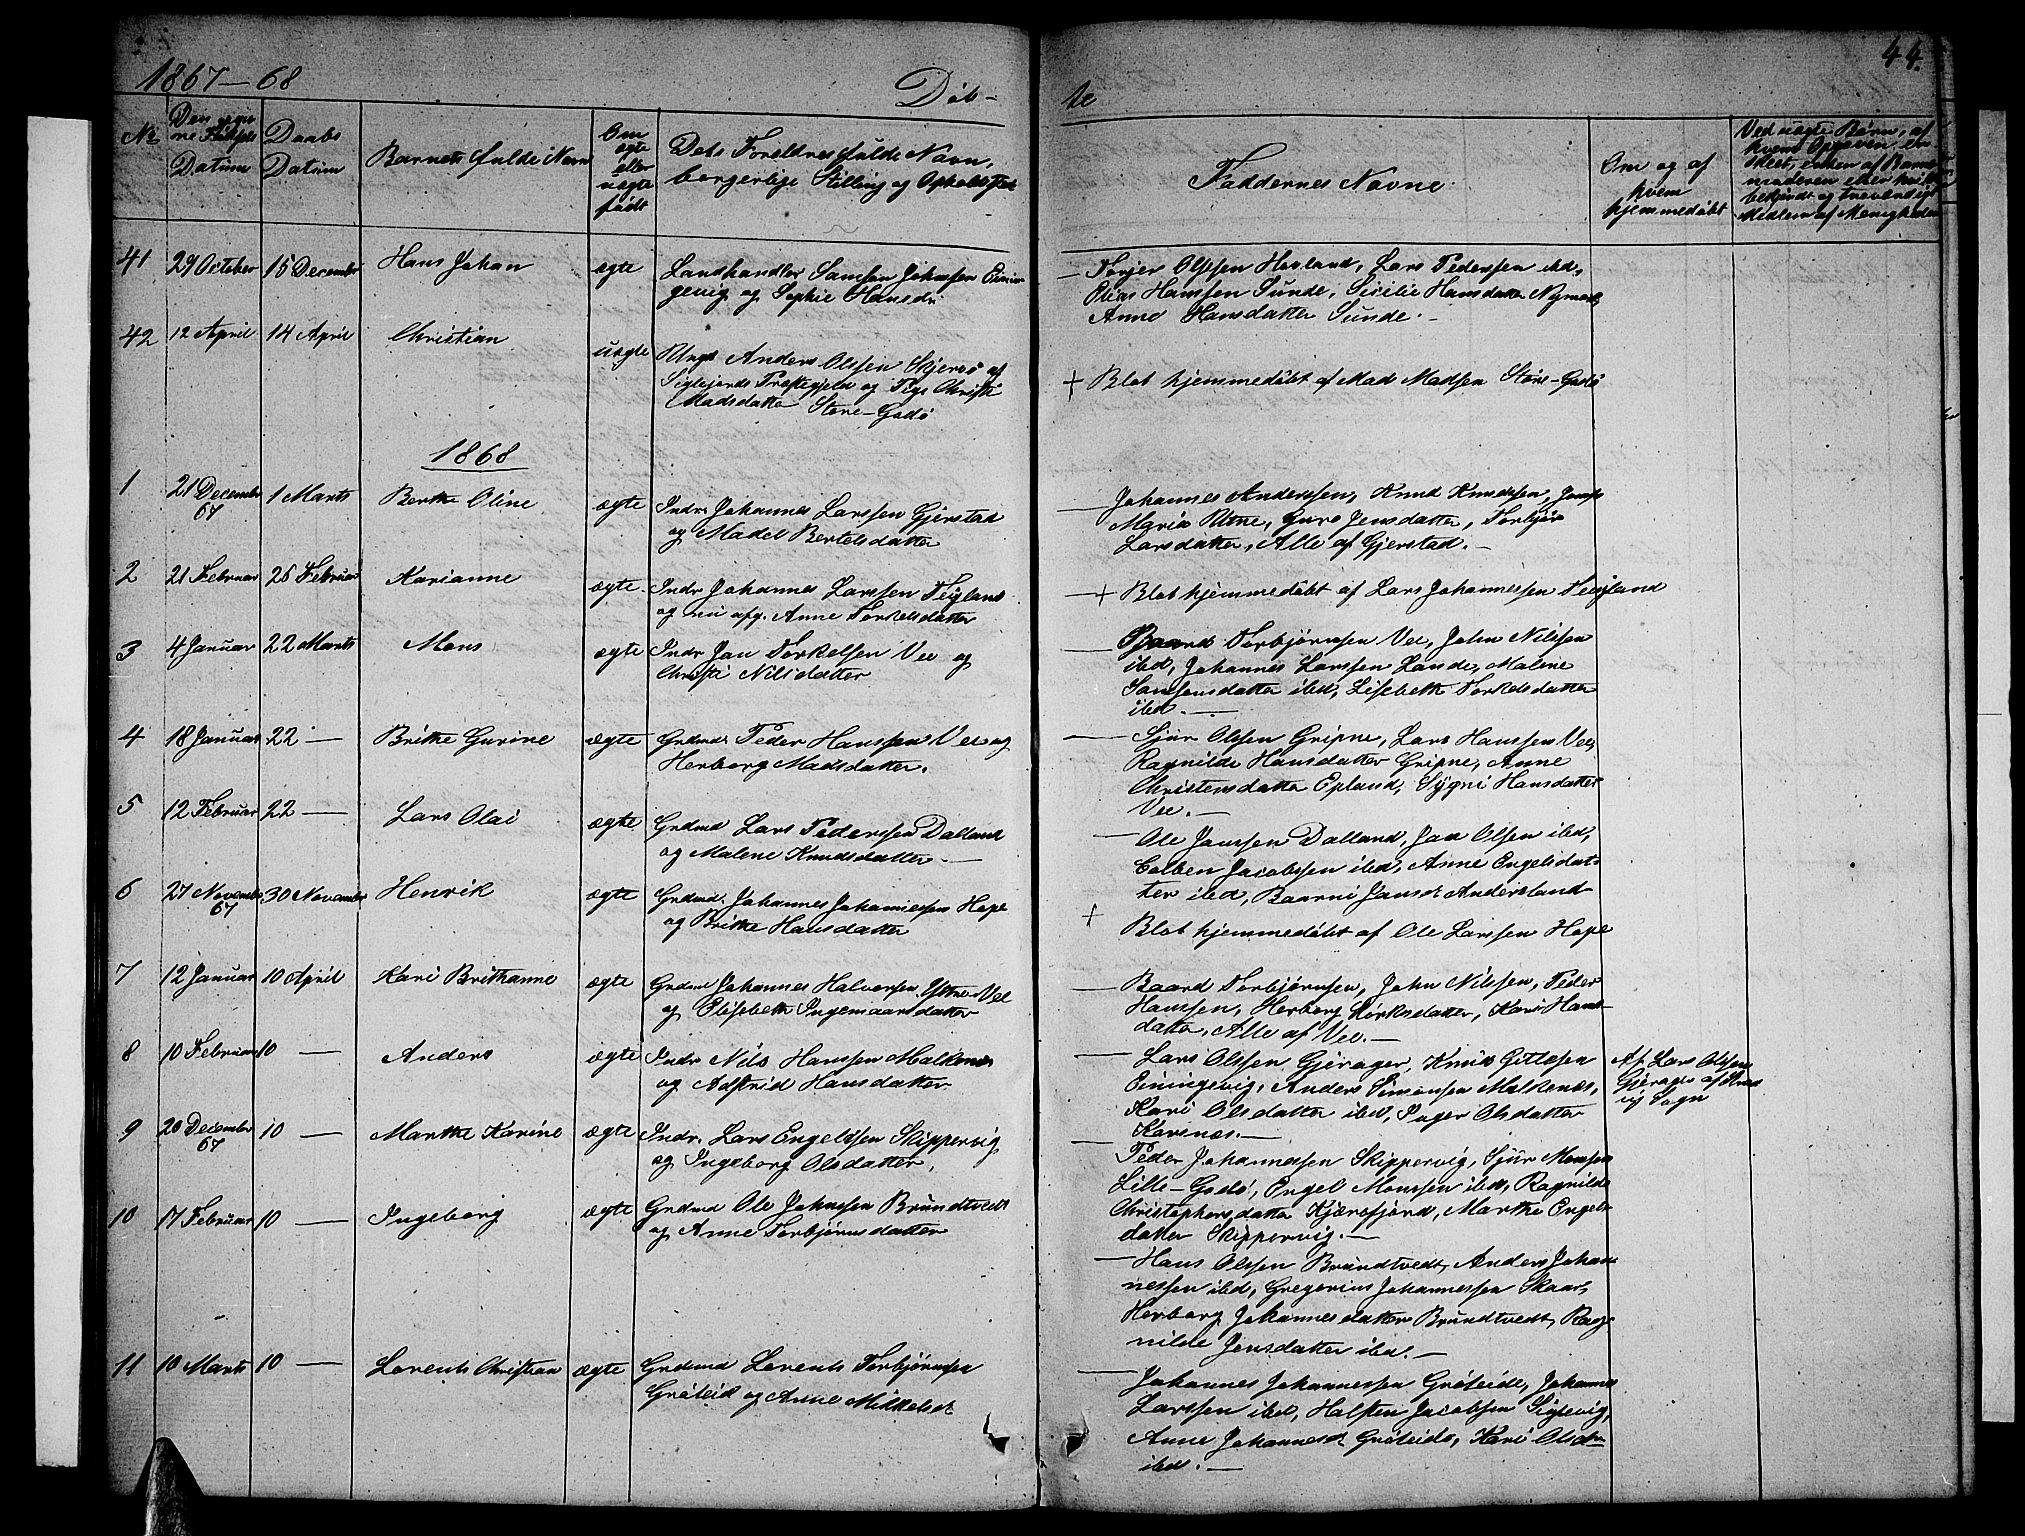 1867–68
Døb-
te
44.
No
Datum
Daabs
Datum
Barnets fulde Navn
Om
ægte
eller
uægte
født
Dets Foreldres fulde Navn,
borgerlige Stilling og Opholdsted
Faddernes Navne.
Om og af
hvem
hjemmedøbt
Ved uægte Børn, af
41 29 October 15 December Hans Johan ægte Landhandler Samson Johnsen
gevig og Sophie Hansdr
— Torjer Olssen Havland, Lars Pedersen ibd,
Elias Hanssen Sunde, Sicilie Hansdatter
Anne Hansdatter Sunde. —
42 12 April 14 April Christian uægte Ungk Anders Olssen Skjersø af
Præstegjeld og Pige Christi
Madsdatter Store-Godø
+ Blot hjemmedøbt af Mad Madsen Store-Godø
1868
1 21 December 67 1 Marts Berthe Oline ægte Indr. Johannes Larssen Gjerstad
og Madel Bertelsdatter
— Johannes Anderssen, Knud Knudssen,
Maria Utne, Guro Jensdatter, Torbjør
Larsdatter, Alle af Gjerstad. —
2 21 Februar 26 Februar Karianne ægte Indr Johannes Larssen Teigland
og nu afg. Anne Torkelsdatter
— + Blot hjemmedøbt af Lars Johannessen Teigland
3 4 Januar 22 Marts Mons ægte Indr Jan Torkelsen Vee og
Christi Nilsdatter
— Baard Torbjørnsen Vee, John Nilssen
ibd, Johannes Larssen Lande, Malene
Samsonsdatter ibd, Lisebeth Torkelsdatter
ibd. —
4 18 Januar 22 — Brithe Gurine ægte Grdmd. Peder Hanssen Vee og
Herborg Madsdatter.
— Sjur Olssen Gripne, Lars Hanssen Vee,
Ragnilde Hansdatter Gripne, Anne
Christensdatter Epland, Sygni Hansdatter
Vee. —
5 12 Februar 22 — Lars Olai ægte Grdmd Lars Pederssen Dalland
og Malene Knudsdatter. —
— Ole Janssen Dalland, Jan Olsen ibd,
Colben Jacobssen ibd, Anne Engelsdat-
ter ibd, Baarni Jansdr Andersland —
6 27 November 67 30 November Henrik ægte Grdmd. Johannes Johannessen Hope
og Brithe Hansdatter
+ Blot hjemmedøbt af Ole Larssen Hope
7 12 Januar 10 April Kari Brithanne ægte Grdmd Johannes Halvorsen Ystre-Vee
og Elisebeth Ingemaarsdatter
— Baard Torbjørnsen, John Nilssen, Peder
Hanssen, Herborg Larsdatter, Kari Hans-
datter, Alle af Vee. —
8 10 Februar 10 — Anders ægte Indr Nils Hanssen Malkenes
og Adstrid Hansdatter
— Lars Olssen Gjerager, Knud Gittlesen
Einingevig, Anders Simonsen Malkenes,
Kari Olsdatter ibd, Inger Olsdatter
Karsnæs. —
Af Lars Olssen
Gjerager af
Sogn
9 20 December 67 10 — Marthe Karine ægte Indr. Lars Engelssen Skippervig
og Ingeborg Olsdatter,
— Peder Johannessen Skippervig, Sjur Monsen
Lille-Godø, Engel Monssen ibd, Ragnilde
Christophersdatter Kjærsfjord, Marthe Engels-
datter Skippervig. —
10 17 Februar 10 — Ingeborg ægte Grdmd Ole Johnssen Brundtvedt
og Anne Torbjørnsdatter
— Hans Olssen Brundtvedt, Anders Johan-
nessen ibd, Gregorius Johannessen Skaar,
Herborg Johannesdatter Brundtvedt, Rag-
nilde Jensdatter ibd. —
11 10 Marts 10 — Lorents Christian ægte Grdmd Lorents Torbjørnsen
Gråteid og Anne Mikkelsdr
— Johannes Johannessen Gråteide, Johannes
Larssen ibd, Halsten Jacobssen Siglevig,
Anne Johannesdr Gråteide, Kari Olsdr
ibd. —